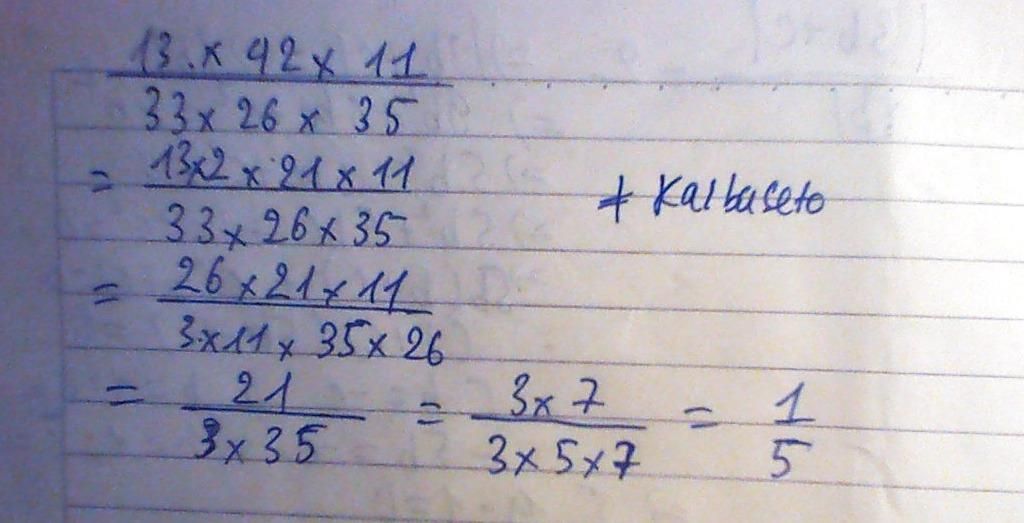 13 × 42 × 11
33 × 26 × 35
= 13×2 × 21 × 11
33 × 26 × 35
+ Kalbuseto
= 26 × 21 × 11
3×11 × 35 × 26
= 21 = 3 × 7 = 1
3 × 35 3 × 5 × 7 5